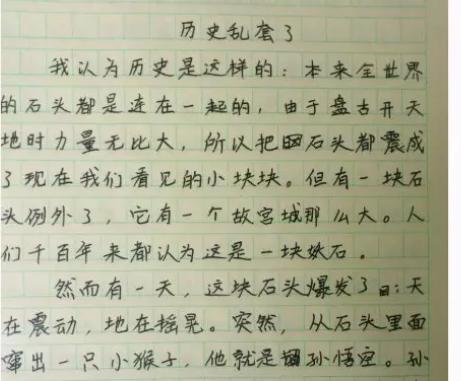 历史乱套了
我认为历史是这样的：本来全世界
的石头都是连在一起的，由于盘古开天
地时力量无比大，所以把石头都震成
了现在我们看见的小块块。但有一块石
头例外了，它有一个故宫城那么大。人
们千百年来都认为这是一块妖石。
然而有一天，这块石头爆发了：天
在震动，地在摇晃。突然，从石头里面
蹿出一只小猴子，他就是孙悟空。孙